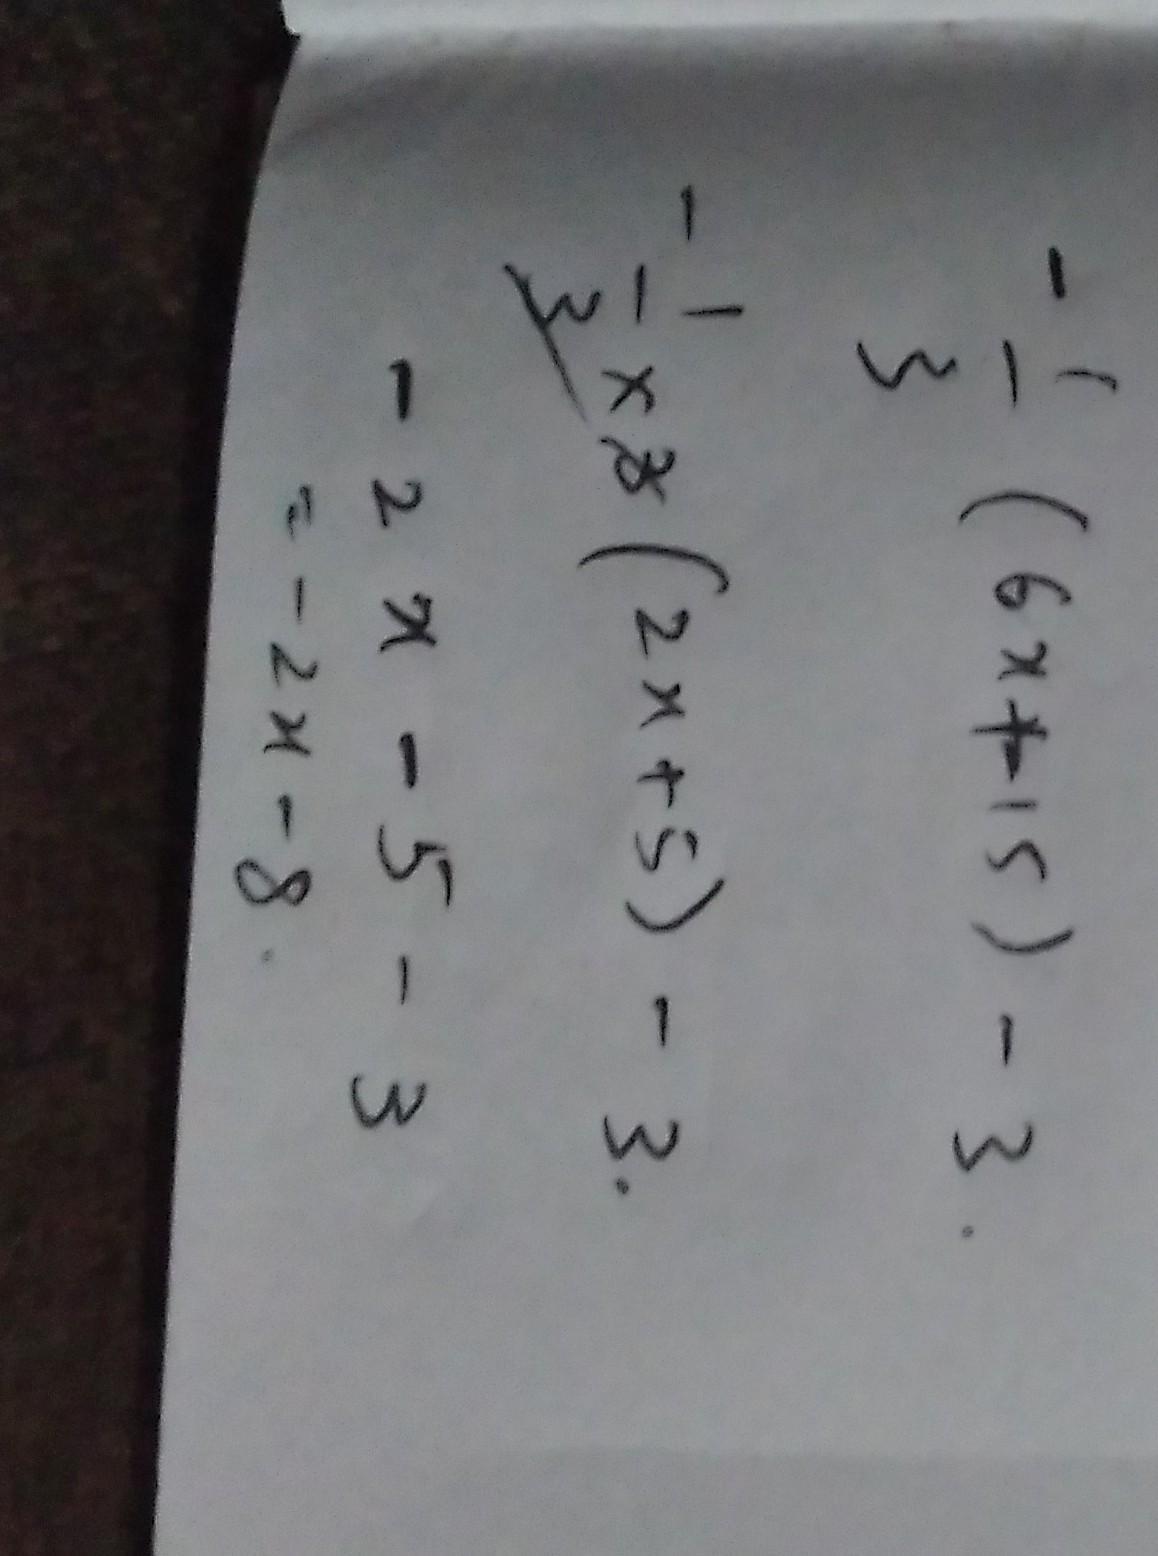 - 1/3 (6x+15) - 3.
- 1/3 × 3 (2x+5) - 3.
- 2x - 5 - 3
= -2x - 8.